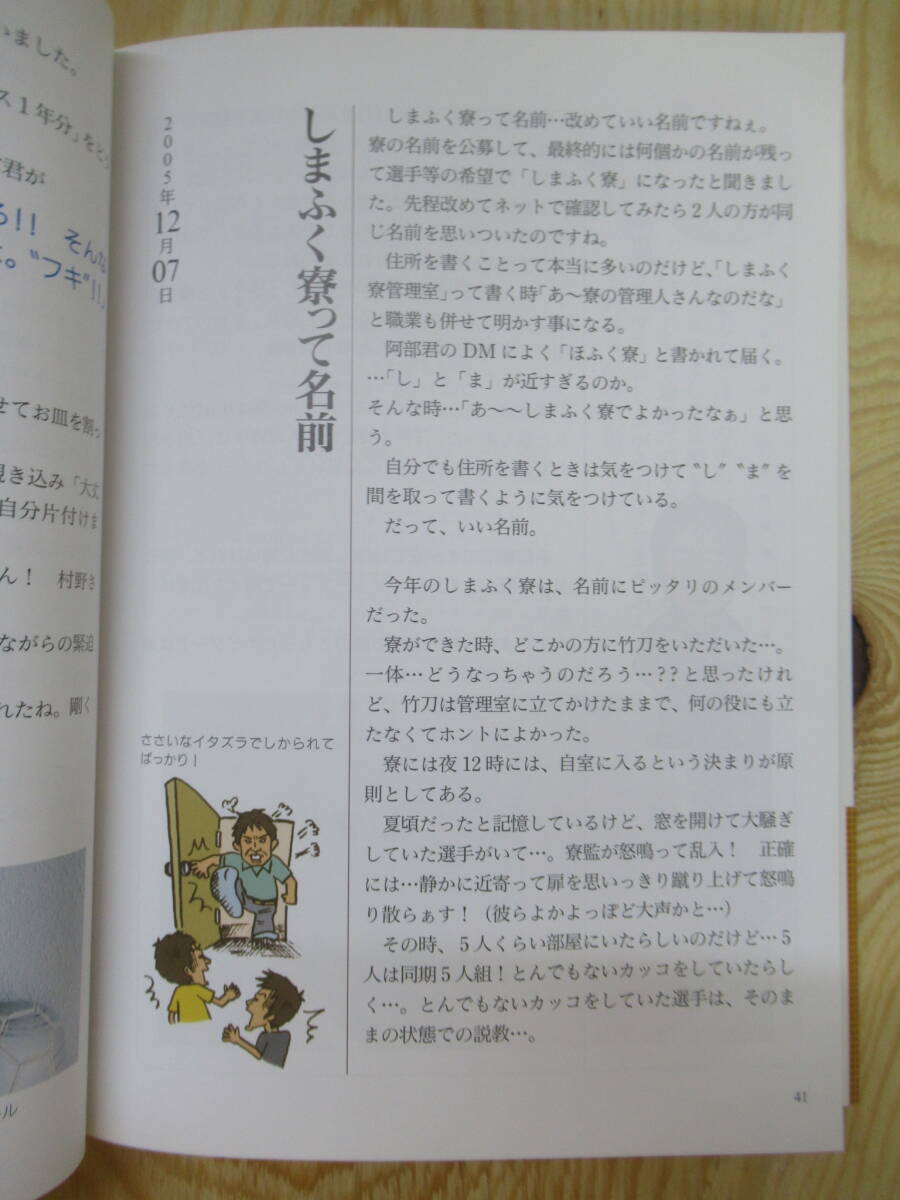 いました。
ス1年分」をと
君が
ろ!! そんな
。〝フキ〟!!」
せてお皿を割っ
覗き込み「大丈
自分片付けま
ん！　村野さ
ながらの緊迫
れたね。剛く
ル
2005年12月07日
しまふく寮って名前
しまふく寮って名前…改めていい名前ですねぇ。
寮の名前を公募して、最終的には何個かの名前が残っ
て選手等の希望で「しまふく寮」になったと聞きまし
た。先程改めてネットで確認してみたら2人の方が同
じ名前を思いついたのですね。
住所を書くことって本当に多いのだけど、「しまふく
寮管理室」って書く時「あ～寮の管理人さんなのだな」
と職業も併せて明かす事になる。
阿部君のDMによく「ほふく寮」と書かれて届く。
…「し」と「ま」が近すぎるのか。
そんな時…「あ～～しまふく寮でよかったなぁ」と思
う。
自分でも住所を書くときは気をつけて〝し〟〝ま〟を
間を取って書くように気をつけている。
だって、いい名前。
今年のしまふく寮は、名前にピッタリのメンバー
だった。
寮ができた時、どこかの方に竹刀をいただいた…。
一体…どうなっちゃうのだろう…??と思ったけれ
ど、竹刀は管理室に立てかけたままで、何の役にも立
たなくてホントによかった。
寮には夜12時には、自室に入るという決まりが原
則としてある。
夏頃だったと記憶しているけど、窓を開けて大騒ぎ
していた選手がいて…。寮監が怒鳴って乱入！　正確
には…静かに近寄って扉を思いっきり蹴り上げて怒鳴
り散らぁす！（彼らよかよっぽど大声かと…）
その時、5人くらい部屋にいたらしいのだけど…5
人は同期5人組！とんでもないカッコをしていたらし
く…。とんでもないカッコをしていた選手は、そのま
まの状態での説教…。
ささいなイタズラでしかられて
ばっかり！
41